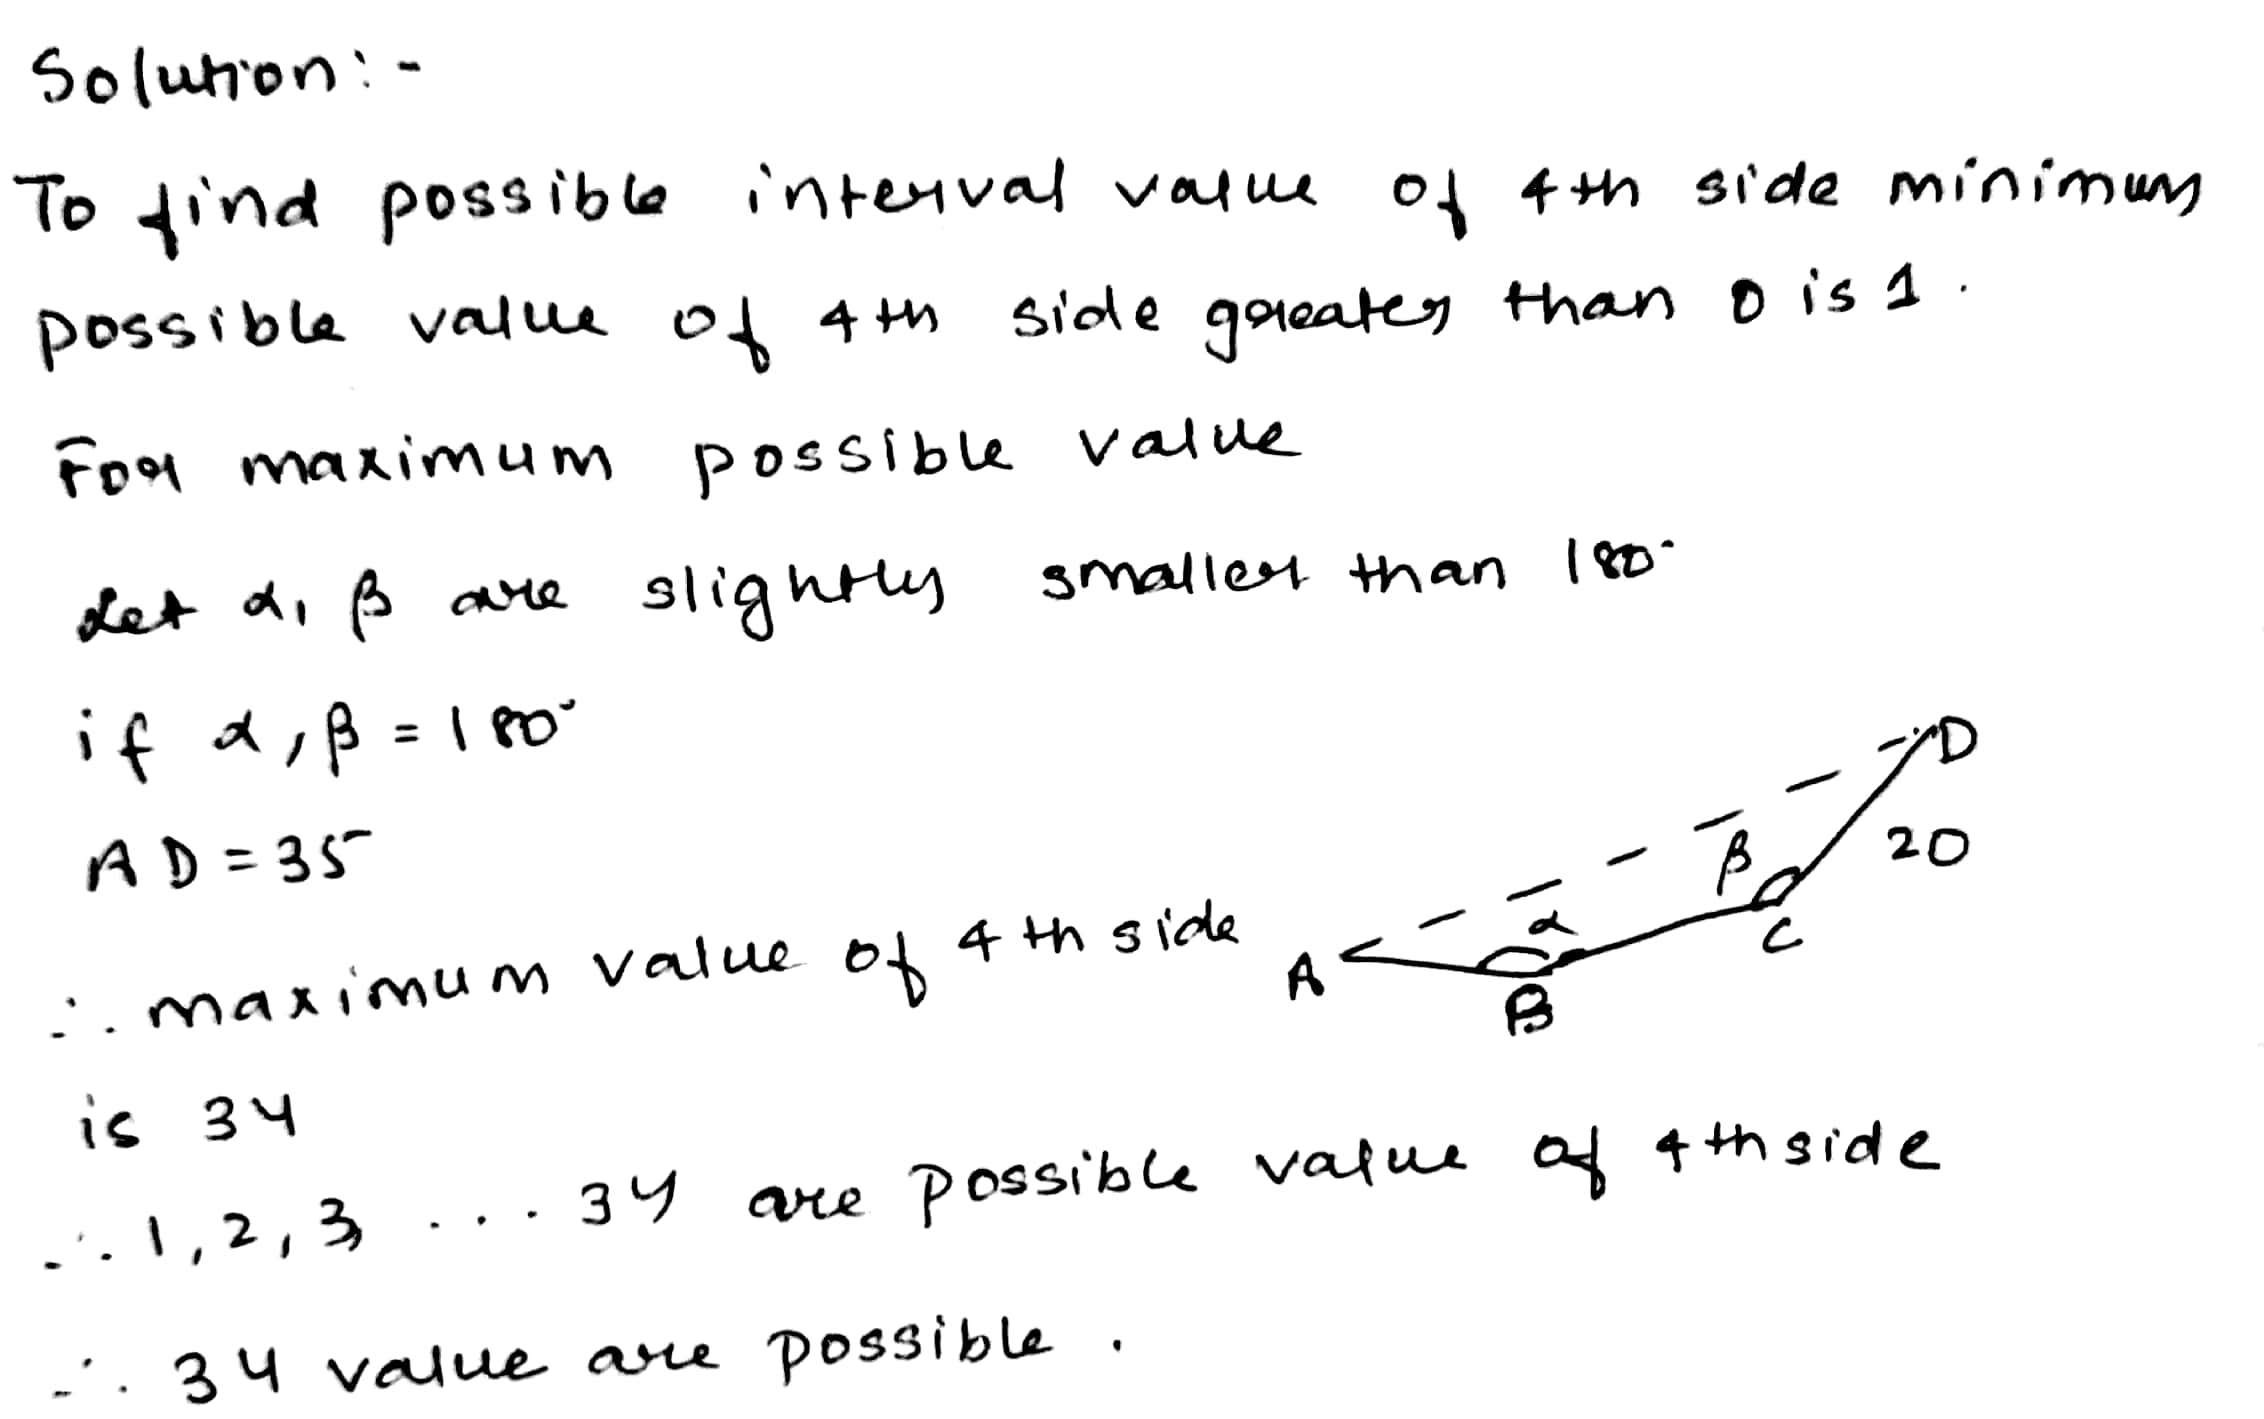 Solution:-
To find possible interval value of 4th side minimum
possible value of 4th side greater than 0 is 1.
For maximum possible value
Let α, β are slightly smaller than 180°
if α, β = 180°
AD = 35
∴ maximum value of 4th side
is 34
∴ 1, 2, 3, ... 34 are possible value of 4th side
∴ 34 value are possible.
D
20
β
C
α
A
B